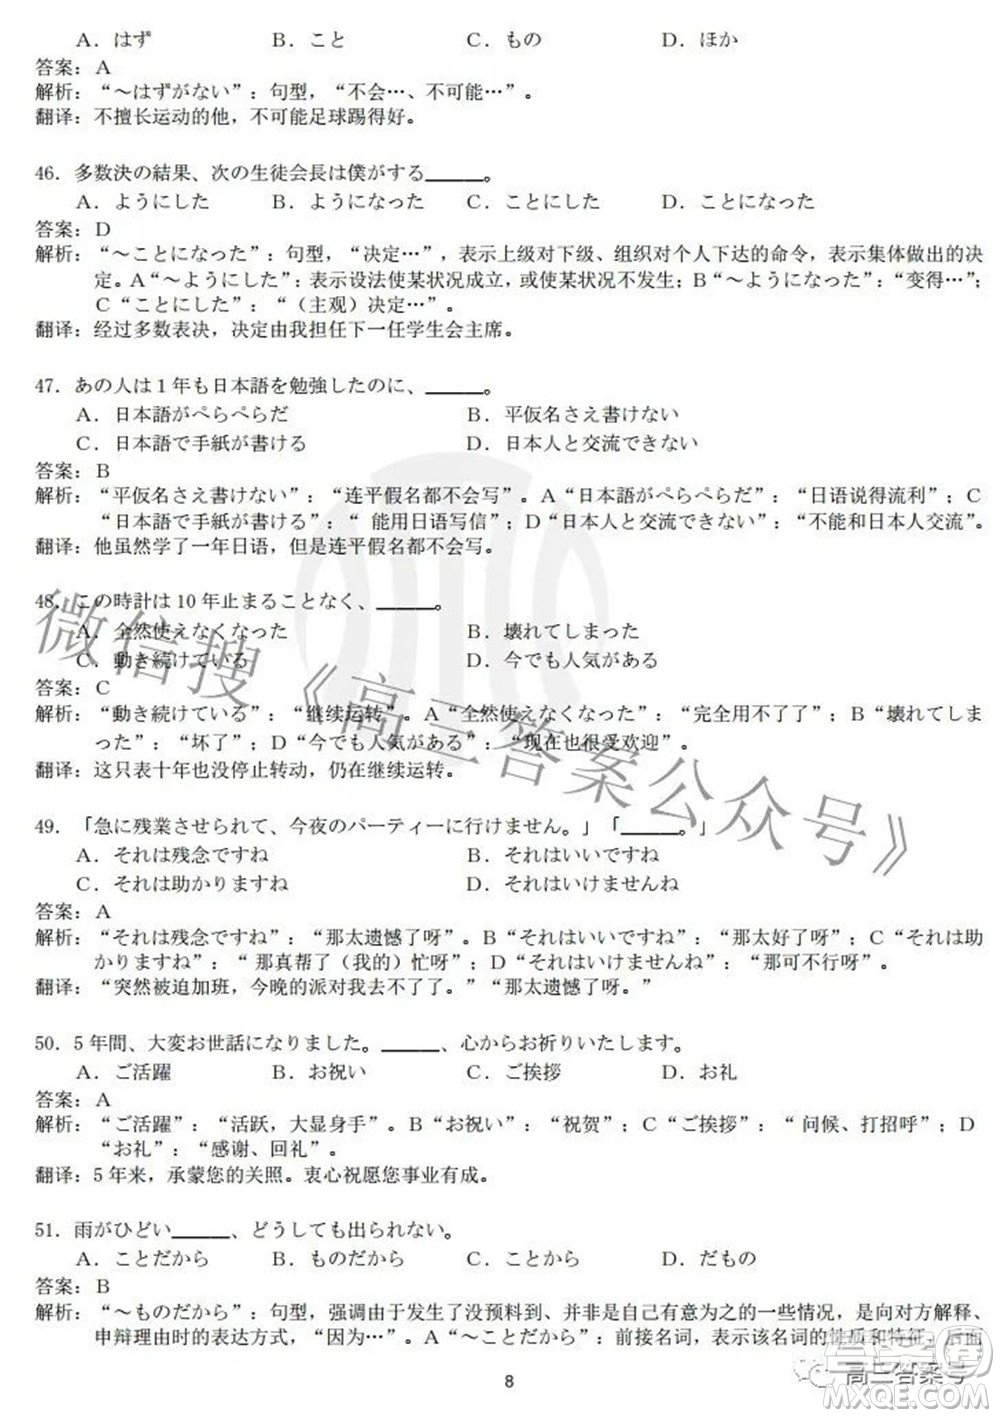 A. はず B. こと C. もの D. ほか
答案：A
解析：“～はずがない”：句型，“不会…、不可能…”。
翻译：不擅长运动的他，不可能足球踢得好。
46. 多数決の結果、次の生徒会長は僕がする______。
A. ようにした B. ようになった C. ことにした D. ことになった
答案：D
解析：“～ことになった”：句型，“决定…”，表示上级对下级、组织对个人下达的命令，表示集体做出的决
定。A“～ようにした”：表示设法使某状况成立，或使某状况不发生；B“～ようになった”：“变得…”；
C“ことにした”：“（主观）决定…”。
翻译：经过多数表决，决定由我担任下一任学生会主席。
47. あの人は１年も日本語を勉強したのに、______。
A. 日本語がぺらぺらだ B. 平仮名さえ書けない
C. 日本語で手紙が書ける D. 日本人と交流できない
答案：B
解析：“平仮名さえ書けない”：“连平假名都不会写”。A“日本語がぺらぺらだ”：“日语说得流利”；C
“日本語で手紙が書ける”：“ 能用日语写信”；D“日本人と交流できない”：“不能和日本人交流”。
翻译：他虽然学了一年日语，但是连平假名都不会写。
48. この時計は 10 年止まることなく、______。
A. 全然使えなくなった B. 壊れてしまった
C. 動き続けている D. 今でも人気がある
答案：C
解析：“動き続けている”：“继续运转”。A“全然使えなくなった”：“完全用不了了”；B“壊れてしま
った”：“坏了”；D“今でも人気がある”：“现在也很受欢迎”。
翻译：这只表十年也没停止转动，仍在继续运转。
微信搜《高三答案公众号》
49. 「急に残業させられて、今夜のパーティーに行けません。」「______。」
A. それは残念ですね B. それはいいですね
C. それは助かりますね D. それはいけませんね
答案：A
解析：“それは残念ですね”：“那太遗憾了呀”。B“それはいいですね”：“那太好了呀”；C“それは助
かりますね”：“ 那真帮了（我的）忙呀”；D“それはいけませんね”：“那可不行呀”。
翻译：“突然被迫加班，今晚的派对我去不了了。”“那太遗憾了呀。”
50. 5 年間、大変お世話になりました。______、心からお祈りいたします。
A. ご活躍 B. お祝い C. ご挨拶 D. お礼
答案：A
解析：“ご活躍”：“活跃，大显身手”。B“お祝い”：“祝贺”；C“ご挨拶”：“ 问候、打招呼”；D
“お礼”：“感谢、回礼”。
翻译：5 年来，承蒙您的关照。衷心祝愿您事业有成。
51. 雨がひどい______、どうしても出られない。
A. ことだから B. ものだから C. ことから D. だもの
答案：B
解析：“～ものだから”：句型，强调由于发生了没预料到、并非是自己有意造成的一些情况，是向对方解释、
申辩理由时的表达方式，“因为…”。A“～ことだから”：前接名词，表示该名词的性质和特征，后面
8
高三答案号
答案圈
MXQE.COM